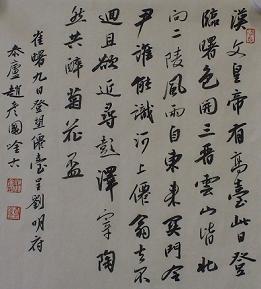 漢文皇帝有高臺此日登
臨曙色開三晉雲山皆北
向二陵風雨自東来関門令
尹誰能識河上僊翁去不
迴且欲近尋彭澤宰陶
然共醉菊花盃
崔曙九日登望僊臺呈劉明府
趙彥國